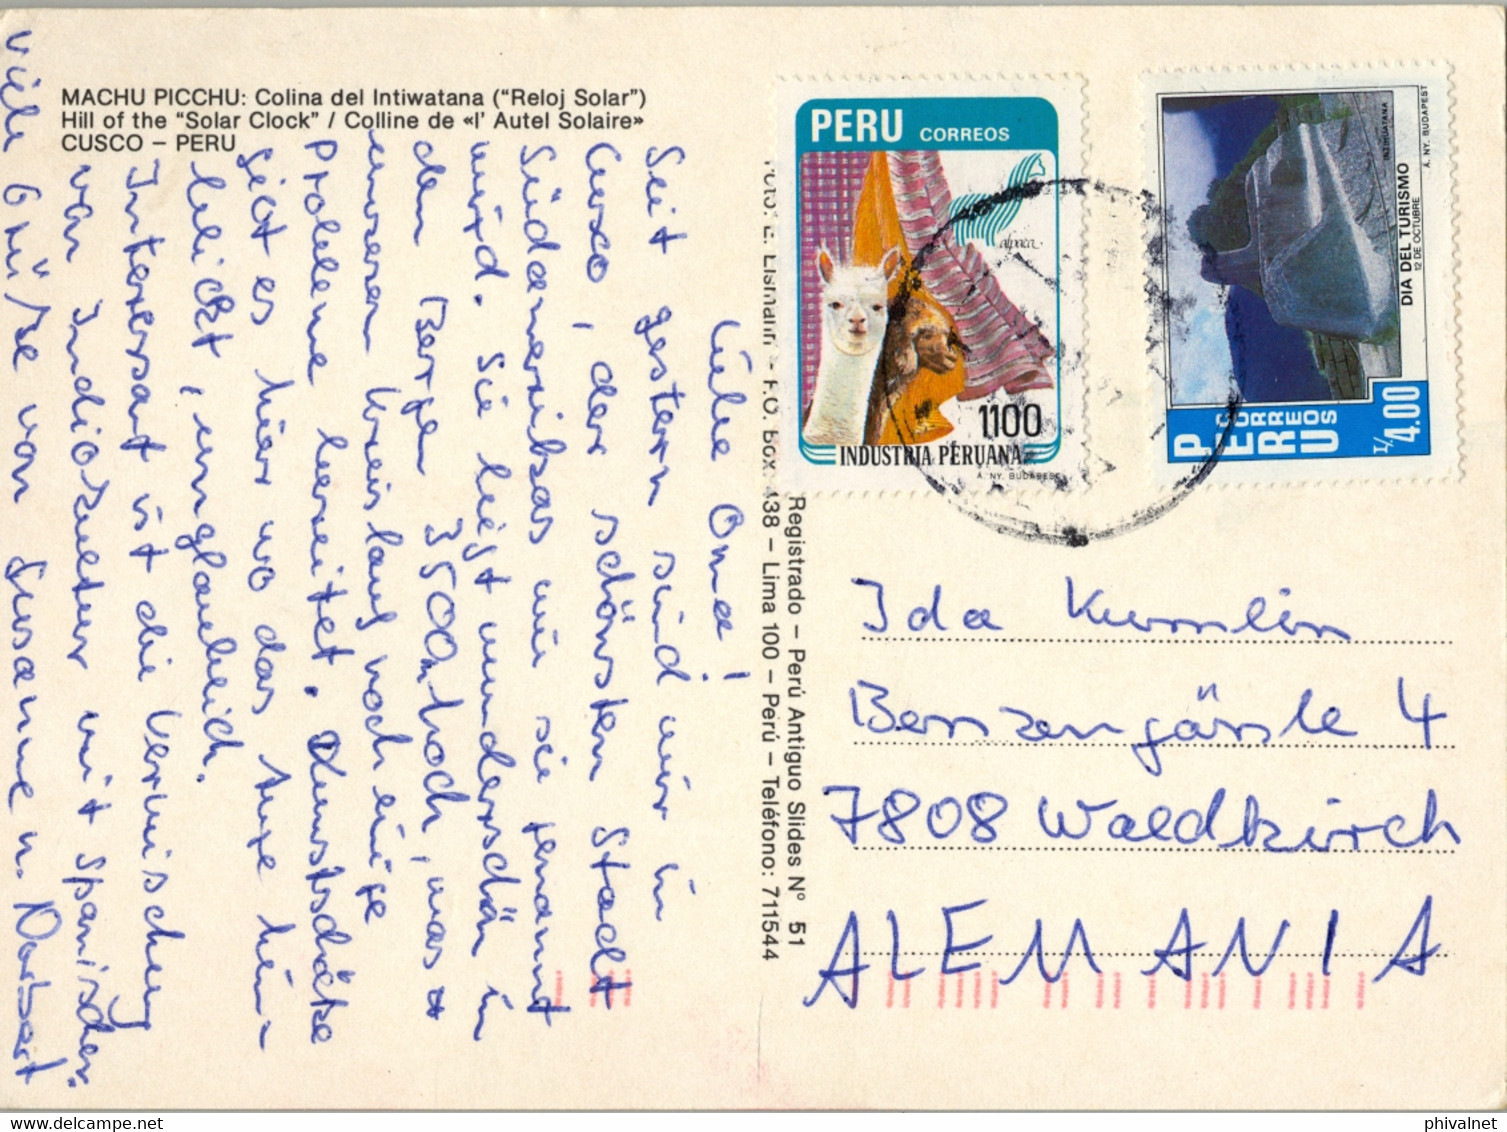 MACHU PICCHU: Colina del Intiwatana (“Reloj Solar”)
Hill of the “Solar Clock” / Colline de «l’ Autel Solaire»
CUSCO – PERU
Liebe Oma!
Seit gestern sind wir in
Cusco, der schönsten Stadt
Südamerikas wie sie genannt
wird. Sie liegt wunderschön in
den Bergen 3500m hoch, was
unserem Kreislauf noch einige
Probleme bereitet. Kunstschätze
gibt es hier wo das Auge hin-
blickt, unglaublich.
Interessant ist die Vermischung
von Indiokultur mit Spanischer.
Viele Grüße von Susanne u. Norbert
Registrado – Perú Antiguo Slides N° 51
P.O. Box: 438 – Lima 100 – Perú – Teléfono: 711544
PERU CORREOS
alpaca
1100
INDUSTRIA PERUANA
A. NY. BUDAPEST
PERU
CORREOS
I/. 4.00
DIA DEL TURISMO
12 DE OCTUBRE
INTIHUATANA
A. NY. BUDAPEST
Ida Kumlin
Benzengässle 4
7808 Waldkirch
ALEMANIA
phivalnet